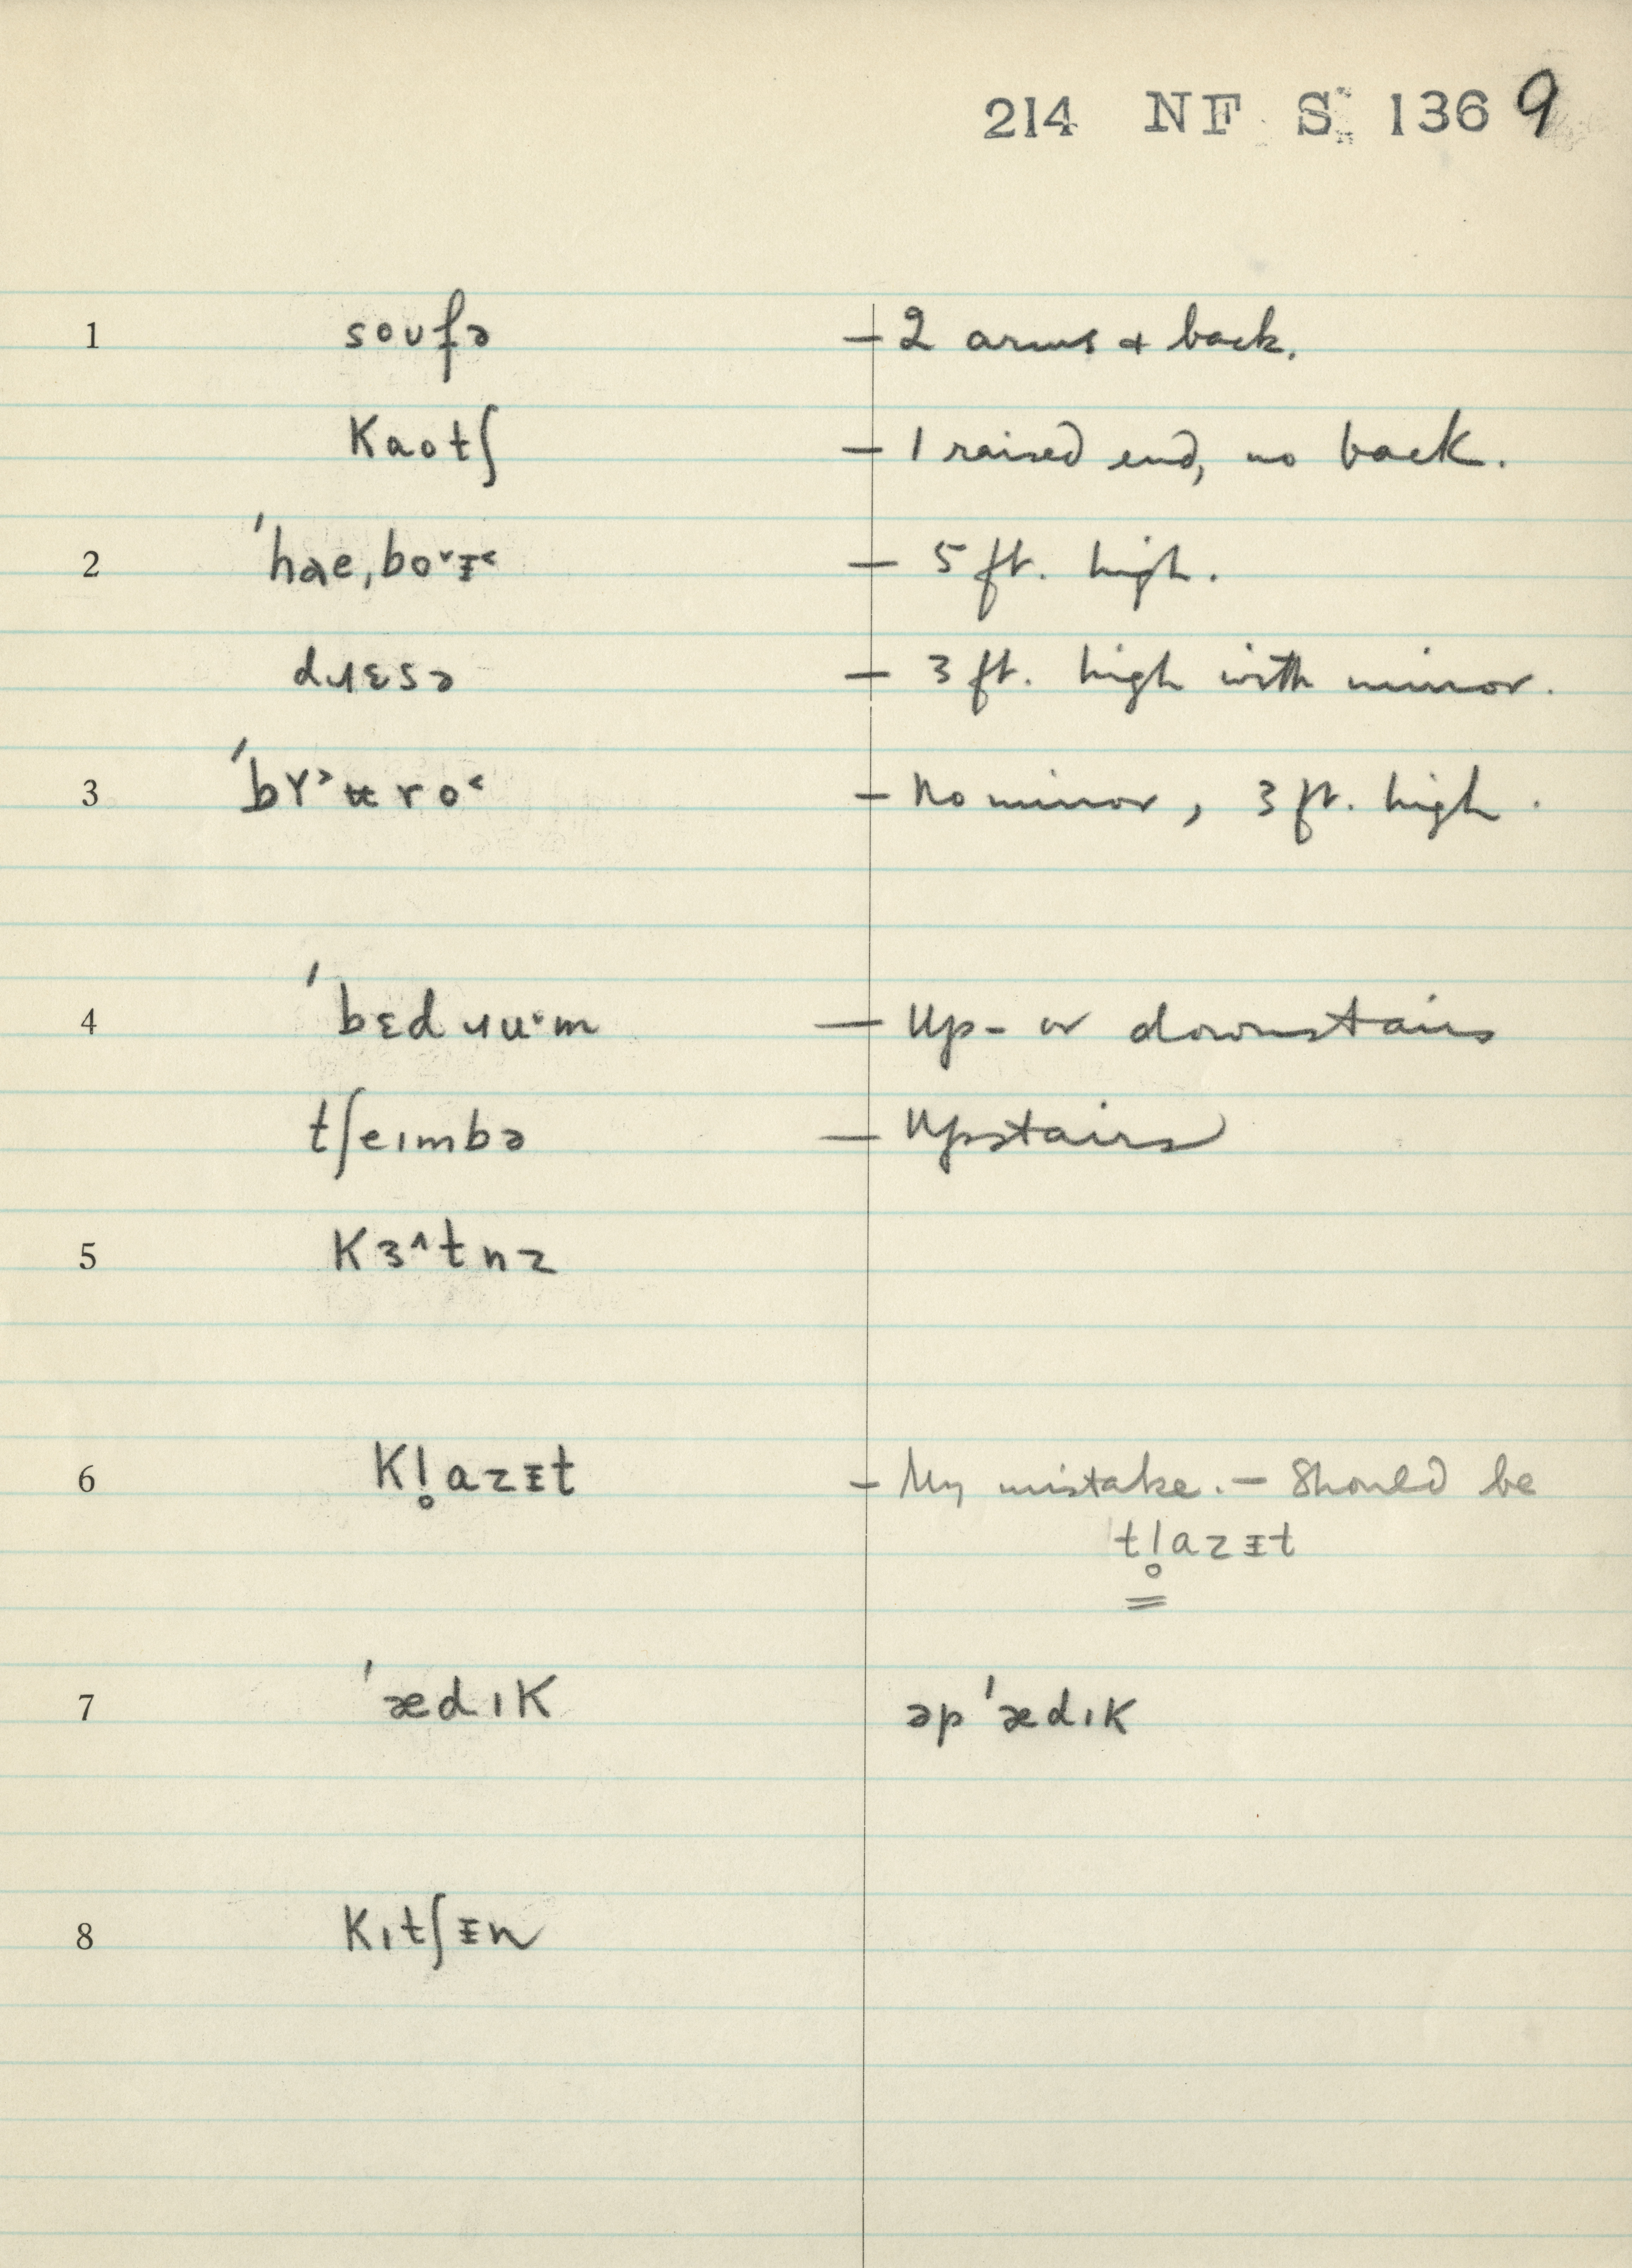 214 NF S 1369
1 soʊfə — 2 arms & back.
kaotʃ — 1 raised end, no back.
2 ˈhae,bo˅ɪ˂ — 5 ft. high.
dɹɛsə — 3 ft. high with mirror.
3 — No mirror, 3 ft. high.
4 ˈbɛdɹu˅m — Up- or downstairs
tʃeɪmbə — Upstairs
5 kɜ˄tnz
6 kl̥azɪt — My mistake. — Should be
tl̥azɪt
7 ˈædɪk əpˈædɪk
8 kɪtʃɪn